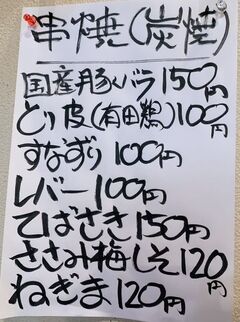 串焼(炭焼)
国産豚バラ150円
とり皮(有田鶏)100円
すなずり100円
レバー100円
てばさき150円
ささみ梅しそ120円
ねぎま120円